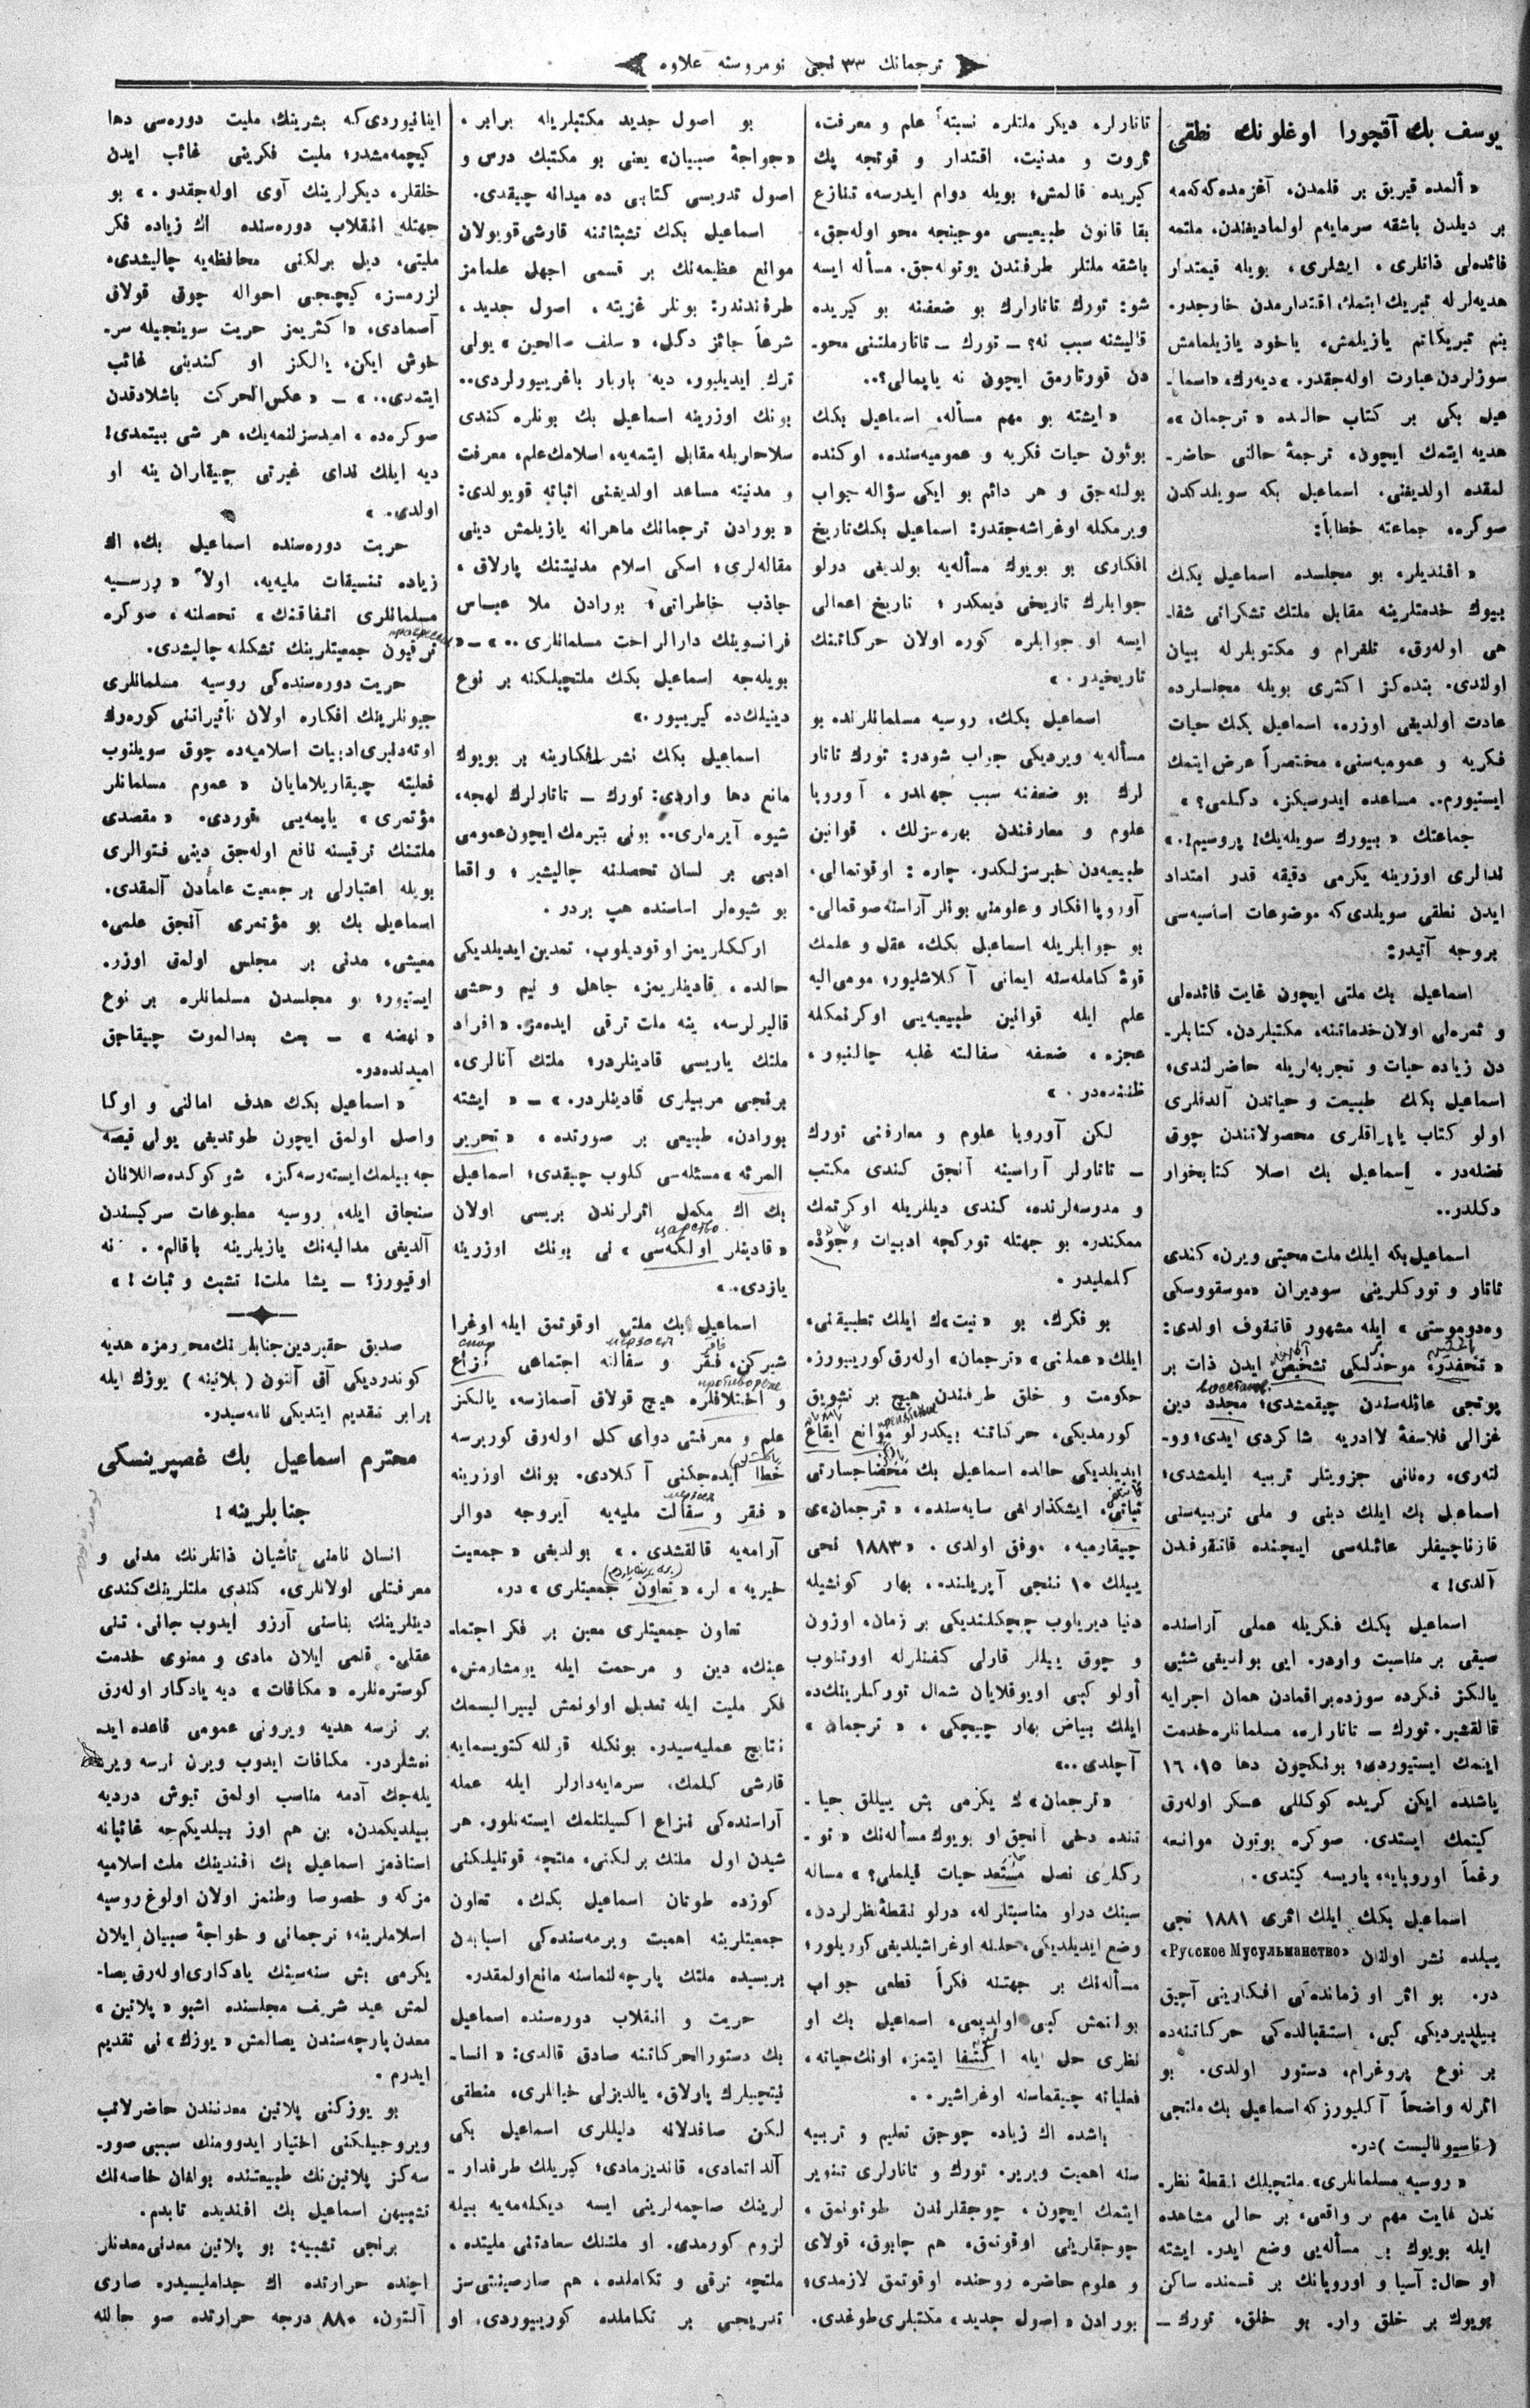 ترجمانك ٣٣ نجی نومروسنه علاوه
يوسف بك آقچورا اوغلونك نطقی
« ألمده قيريق بر قلمدن، آغزمده كه كمه
بر ديلدن باشقه سرمايه م اولماديغندن، ملتمه
فائده لی ذاتلری ، ايشلری ، بويله قيمتدار
هديه لر له تبريك ايتمك، اقتدارمدن خارجدر.
بنم تبريكاتم يازيلمش، ياخود يازيلمامش
سوزلردن عبارت اوله جقدر. » ديه رك، «اسما-
عيل بكی بر كتاب حالنده « ترجمان »ه
هديه ايتمك ايچون، ترجمۀ حالنی حاضر-
لمقده اولديغنی. اسماعيل بكه سويلدكدن
صوكره، جماعته خطاباً:
« افنديلر، بو مجلسده اسماعيل بكك
بيوك خدمتلرينه مقابل ملتك تشكراتی شفا-
هی اوله رق، تلغرام و مكتوبلرله بيان
اولندی. بنده كز اكثری بويله مجلسلرده
عادت اولديغی اوزره، اسماعيل بكك حيات
فكريه و عموميه سنی، مختصراً عرض ايتمك
ايستيورم.. مساعده ايدرسيكز، دكلمی؟ »
جماعتك « بيورك سويله يك! پروسيم!. »
ندالری اوزرينه يكرمی دقيقه قدر امتداد
ايدن نطقی سويلدی كه موضوعات اساسيه سی
بروجه آتيدر:
اسماعيل بك ملتی ايچون غايت فائده لی
و ثمره لی اولان خدماتنه، مكتبلردن، كتابلر-
دن زياده حيات و تجربه لريله حاضرلندی؛
اسماعيل بكك طبيعت و حياتدن آلدقلری
اولو كتاب ياپراقلری محصولاتندن چوق
فضله در . اسماعيل بك اصلا كتابخوار
دكلدر..
اسماعيل بكه ايلك ملت محبتی ويرن، كندی
تاتار و توركلرينی سوديران «موسقووسكی
وه دوموستی» ايله مشهور قاتقوف اولدی:
« تنحفدره موحدلكی تشخيص ايدن ذات بر
پوتجی عائله سندن چيقمشدی؛ مجدد دين
غزالی فلاسفۀ لاادريه شاكردی ايدی؛ وو-
لته ری، ره نانی جزويتلر تربيه ايلمشدی؛
اسماعيل بك ايلك دينی و ملی تربيه سنی
قازناچيفلر عائله سی ايچنده قاتقوفدن
آلدی! »
اسماعيل بكك فكريله عملی آراسنده
صيقی بر مناسبت واردر. ايی بولديغی شيئی
يالكز فكرده سوزده براقمادن همان اجرايه
قالقشير. تورك - تاتارلره، مسلمانلره خدمت
ايتمك ايستيوردی؛ بونكچون دها ١٥، ١٦
ياشلده ايكن كريده كوكللی عسكر اوله رق
كيتمك ايستدی. صوكره بوتون موانعه
رغماً اوروپايه، پاريسه كيتدی.
اسماعيل بكك ايلك اثری ١٨٨١ نجی
ييلده نشر اولنان «Русское Мусульманство»
در. بو اثر او زمانده كی افكارينی آچيق
بيلديرديكی كبی، استقبالده كی حركاتنه ده
بر نوع پروغرام، دستور اولدی. بو
اثرله واضحاً آكليورز كه اسماعيل بك ملتچی
(ناسيوناليست) در.
« روسيه مسلمانلری» ملتچيلك نقطۀ نظر-
ندن غايت مهم بر واقعی، بر حالی مشاهده
ايله بويوك بر مسأله يی وضع ايدر. ايشته
او حال: آسيا و اوروپانك بر قسمنده ساكن
بويوك بر خلق وار. بو خلق، تورك -
تاتارلر، ديكر ملتلره نسبتهً علم و معرفت،
ثروت و مدنيت، اقتدار و قوتجه پك
كيريده قالمش؛ بويله دوام ايدرسه، تنازع
بقا قانون طبيعيسی موجبنجه محو اوله جق،
باشقه ملتلر طرفندن يوتوله جق. مسأله ايسه
شو: تورك تاتارلرك بو ضعفنه بو كيريده
قاليشنه سبب نه؟ - تورك - تاتار ملتنی محو-
دن قورتارمق ايچون نه ياپمالی؟..
« ايشته بو مهم مسأله، اسماعيل بكك
بوتون حيات فكريه و عموميه سنده، اوكنده
بولنه جق و هر دائم بو ايكی سؤاله جواب
ويرمكله اوغراشه جقدر: اسماعيل بكك تاريخ
افكاری بو بويوك مسأله يه بولديغی درلو
جوابلرك تاريخی ديمكدر ؛ تاريخ اعمالی
ايسه او جوابلره كوره اولان حركاتنك
تاريخيدر. »
اسماعيل بكك، روسيه مسلمانلرنده بو
مسأله يه ويرديكی جواب شودر: تورك تاتار
لرك بو ضعفنه سبب جهلدر. آوروپا
علوم و معارفندن بهره سزلك. قوانين
طبيعيه دن خبرسزلكدر. چاره : اوقوتمالی.
آوروپا افكار و علومنی بونلر آراسنه صوقمالی.
بو جوابلريله اسماعيل بكك، عقل و علمك
قوۀ كامله سنه ايمانی آكلاشليور؛ مومی اليه
علم ايله قوانين طبيعيه يی اوكرنمكله
عجزه ، ضعفه سفالته غلبه چالنيور ،
ظننده در . »
لكن آوروپا علوم و معارفنی تورك
- تاتارلر آراسينه آنجق كندی مكتب
و مدرسه لرنده، كندی ديللريله اوكرتمك
ممكندر. بو جهتله توركچه ادبيات وجوده
كلمليدر .
بو فكرك، بو «نيت»ك ايلك تطبيقنی،
ايلك «عملنی» «ترجمان» اوله رق كوريبورز.
حكومت و خلق طرفندن هيچ بر تشويق
كورمديكی، حركاتنه بيكدرلو موانع ايقاع
ايديلديكی حالده اسماعيل بك محضا جسارتی
ثباتی، ايشكذارلغی سايه سنده، «ترجمان»ی
چيقارميه، موفق اولدی. « ١٨٨٣ نجی
ييلك ١٠ ننجی آپريلنده، بهار كونشيله
دنيا ديريلوب چيچكلنديكی بر زمان، اوزون
و چوق ييللر قارلی كفنلرله اورتنوب
أولو كبی اويوقلايان شمال توركلرينك ده
ايلك بياض بهار چيچكی ، « ترجمان »
آچلدی..»
«ترجمان»ك يكرمی بش ييللق حيا-
تنده دخی آنجق او بويوك مسأله نك «تو-
ركلری نصل مستعد حيات قيلملی؟» مساله
سينك درلو مناسبتلرله، درلو نقطۀ نظرلردن،
وضع ايديلديكی، حلنه اوغراشيلديغی كوريلور؛
مسأله نك بر جهتنه فكراً قطعی جواب
بولنمش كبی اولديمی، اسماعيل بك او
نظری حل ايله اكتفا ايتمز، اونك حياته ،
فعلياته چيقماسنه اوغراشير ..
باشده اك زياده چوجق تعليم و تربيه
سنه اهميت ويرير. تورك و تاتارلری تنوير
ايتمك ايچون ، چوجقلرندن طوتونمق ،
چوجقارينی اوقوتمق، هم چابوق، قولای
و علوم حاضره روحنده اوقوتمق لازمدی؛
بورادن «اصول جديد» مكتبلری طوغدی.
بو اصول جديد مكتبلريله برابر ،
«خواجۀ صبيان» يعنی بو مكتبك درس و
اصول تدريسی كتابی ده ميدانه چيقدی.
اسماعيل بكك تشبثاتنه قارشی قويولان
موانع عظيمه نك بر قسمی اجهل علمامز
طرفندندر: بونلر غزيته ، اصول جديد ،
شرعاً جائز دكل، «سلف صالحين» يولی
ترك ايديليور، ديه باربار باغرييورلردی..
بونك اوزرينه اسماعيل بك بونلره كندی
سلاحلريله مقابل ايتمه يه، اسلامك علم، معرفت
و مدنيته مساعد اولديغنی اثباته قويولدی:
« بورادن ترجمانك ماهرانه يازيلمش دينی
مقاله لری؛ اسكی اسلام مدنيتنك پارلاق ،
جاذب خاطراتی؛ بورادن ملا عباس
فرانسوينك دارالراحت مسلمانلری .. » - «
بويله جه اسماعيل بكك ملتچيلكنه بر نوع
دينيلك ده كيرييور .»
اسماعيل بكك نشر افكارينه بر بويوك
مانع دها واردی: تورك - تاتارلرك لهجه،
شيوه آيرملری.. بونی بتيرمك ايچون عمومی
ادبی بر لسان تحصلنه چاليشير ؛ واقعا
بو شيوه لر اساسنده هپ بردر .
اركلكلريمز اوقوديلوب، تمدين ايديلديكی
حالده ، قادينلريمز، جاهل و نيم وحشی
قالير لرسه، ينه ملت ترقی ايده مز. «افراد
ملتك ياريسی قادينلردر؛ ملتك آنالری،
برنجی مربيلری قادينلردر. » - « ايشته
بورادن، طبيعی بر صورتده ، «تحرير
المرئه» مسئله سی كلوب چيقدی؛ اسماعيل
بك اك مكمل اثرلرندن بريسی اولان
царство.
« قادينلر اولكه سی » نی بونك اوزرينه
يازدی.. »
اسماعيل بك ملتی اوقوتمق ايله اوغرا
شيركن، فقر و سفالته اجتماعی نزاع
و اختلافلره هيچ قولاق آصمازسه، يالكز
علم و معرفتی دوای كل اوله رق كوريرسه
خطا ايده جكنی آكلادی. بونك اوزرينه
« فقر و سفالت مليه يه آيروجه دوالر
آرامه يه قالقشدی. » بولديغی «جمعيت
خيريه» لر، « تعاون جمعيتلری » در.
تعاون جمعيتلری معين بر فكر اجتما-
عينك، دين و مرحمت ايله يومشارمش،
فكر مليت ايله تعديل اولونمش ليبراليسمك
نتايج عمليه سيدر. بونكله قوللەكتويسمايه
قارشی كلمك، سرمايه دارلر ايله عمله
آراسنده كی نزاع اكسيلتلمك ايسته نلور. هر
شيدن اول ملتك برلكنی، ملتجه قوتليلكنی
كوزده طوتان اسماعيل بكك، تعاون
جمعيتلرينه اهميت ويرمه سنده كی اسبابدن
بريسيده ملتك پارچه لنماسنه مانع اولمقدر.
حريت و انقلاب دوره سنده اسماعيل
بك دستور الحركاتنه صادق قالدی: «انسا-
نيتچيلرك پارلاق، يالديزلی خياللری، منطقی
لكن صافدلانه دليللری اسماعيل بكی
آلداتمادی، قانديرمادی؛ كيريلك طرفدار-
لرينك صاچمه لرينی ايسه ديكله مه يه بيله
لزوم كورمدی. او ملتنك سعادتنی مليتده ،
ملتجه ترقی و تكاملده، هم صارصينتی سز
تدريجی بر تكاملده كوريبوردی. او
اينانيوردی كه بشرينك، مليت دوره سی دها
كيچمه مشدر؛ مليت فكرينی غائب ايدن
خلقلر، ديكرلرينك آوی اوله جقدر. » بو
جهتله انقلاب دوره سنده اك زياده فكر
مليتی، ديل برلكنی محافظه يه چاليشدی،
لزرمسز، كيچيجی احواله چوق قولاق
آصمادی. «اكثريمز حريت سوينجيله سر-
خوش ايكن، يالكز او كندينی غائب
ايتمدی.. » - « عكس الحركت باشلادقدن
صوكره ده ، اميدسزلنمه يك، هر شی بيتمدی!
ديه ايلك ندای غيرتی چيقاران ينه او
اولدی. »
حريت دوره سنده اسماعيل بك، اك
زياده تنسيقات مليه يه، اولاً «روسيه
مسلمانلری اتفاقنك» تحصلنه ، صوكره
ترقيون جمعيتلرينك تشكلنه چاليشدی.
حريت دوره سنده كی روسيه مسلمانلری
جيونلرينك افكاره اولان تأثيراتنی كوره رك
اوته دنبری ادبيات اسلاميه ده چوق سويلنوب
فعليته چيقاريلامايان « عموم مسلمانلر
مؤتمری» ياپمه يی قوردی. «مقصدی
ملتنك ترقيسنه نافع اوله جق دينی فتوالری
بويله اعتبارلی بر جمعيت علمادن آلمقدی.
اسماعيل بك بو مؤتمری آنجق علمی،
معيشی، مدنی بر مجلس اولمق اوزر.
ايستيور؛ بو مجلسدن مسلمانلره بر نوع
« نهضه » - بعث بعدالموت چيقاجق
اميدنده در.
« اسماعيل بكك هدف امالنی و اوكا
واصل اولمق ايچون طوتديغی يولی قيصه
جه بيلمك ايسته رسه كز، شو كوكده صاللانان
سنجاق ايله، روسيه مطبوعات سركيسندن
آلديغی مداليه نك يازيلرينه باقالم. . نه
اوقيورز؟ - يشا ملت! تشبث و ثبات! »
صديق حقيردين جنابلرينك محررمزه هديه
كوندرديكی آق آلتون ( پلاتينه ) يوزك ايله
برابر تقديم ايتديكی نامه سيدر.
محترم اسماعيل بك غصپرينسكی
جنابلرينه!
انسان نامنی تاشيان ذاتلرنك، مدنی و
معرفتلی اولانلری، كندی ملتلرينك كندی
دينلرينك بناسنی آرزو ايدوب جانی، تنی
عقلی، قلمی ايلان مادی و معنوی خدمت
كوستره نلره «مكافات» ديه يادكار اوله رق
بر نرسه هديه ويرونی عمومی قاعده ايد-
نمشلردر. مكافات ايدوب ويرن نرسه ويره
يله جك آدمه مناسب اولمق تيوش درديه
بيلديكمدن، بن هم اوز بيلديكم جه غائبانه
استاذمز اسماعيل بك افندينك ملت اسلاميه
مزكه و خصوصا وطنمز اولان اولوغ روسيه
اسلاملرينه؛ ترجمانی و خواجۀ صبيان ايلان
يكرمی بش سنه سينك يادكاری اوله رق يصا-
لمش عيد شريف مجلسنده اشبو «پلاتين»
معدن پارچه سندن يصالمش «يوزك» نی تقديم
ايدرم .
بو يوزكنی پلاتين معدنندن حاضرلاتب
ويروجيلكنی اختيار ايدوومنك سببی صور-
سه كز پلاتين نك طبيعتنده بولغان خاصه نك
تشبيهن اسماعيل بك افنديده تابدم.
برنجی تشبيه: بو پلاتين معدنی معدنلر
اچنده حرارتده اك چداملیسيدر. صاری
آلتون، ٨٨٠ درجه حرارتده صو حالنه